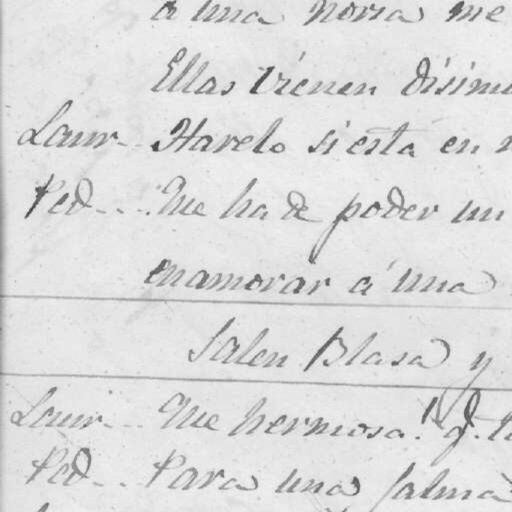 á una novia me
Ellas vienen disimu
Laur.. Harelo si esta en m
Ped... Que ha de poder un
enamorar á una
Salen Blasa y
Laur... Que hermosa! q.
Ped... Para una salma